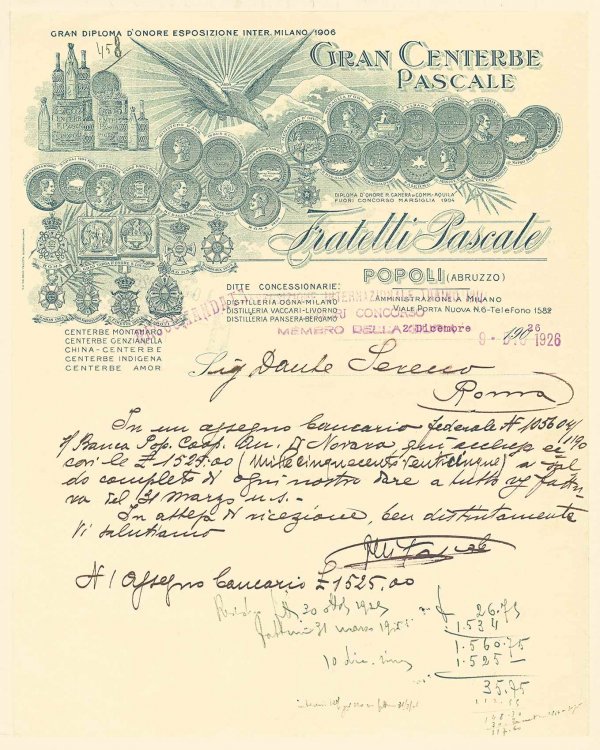 GRAN DIPLOMA D'ONORE ESPOSIZIONE INTER. MILANO 1906
458
GRAN CENTERBE
PASCALE
DIPLOMA D'ONORE R. CAMERA DI COMM. AQUILA
FUORI CONCORSO MARSIGLIA 1904
Fratelli Pascale
POPOLI (ABRUZZO)
DITTE CONCESSIONARIE:
DISTILLERIA OGNA-MILANO
DISTILLERIA VACCARI-LIVORNO
DISTILLERIA PANSERA-BERGAMO
AMMINISTRAZIONE A MILANO
VIALE PORTA NUOVA N.6-TELEFONO 1582
INTERNAZIONALE
CONCORSO
MEMBRO DELLA
Dicembre 190 26
9 - DIC 1926
CENTERBE MONTANARO
CENTERBE GENZIANELLA
CHINA-CENTERBE
CENTERBE INDIGENA
CENTERBE AMOR
Sig Dante Sereno
Roma
In un assegno bancario federale N 105604/190
Banca Pop. Coop. An. di Novara
le £ 1525.00 (Mille cinquecentoventicinque) a sal
do completo di ogni nostro dare a tutto fattu
ra del 31 marzo u.s.-
In attesa di ricezione, ben distintamente
Vi salutiamo
Pascale
N 1 assegno bancario £ 1525.00
30 1925 £ 26.75
fattura 31 marzo 1.534
1.560.75
10 dic. 1.525 -
35.75